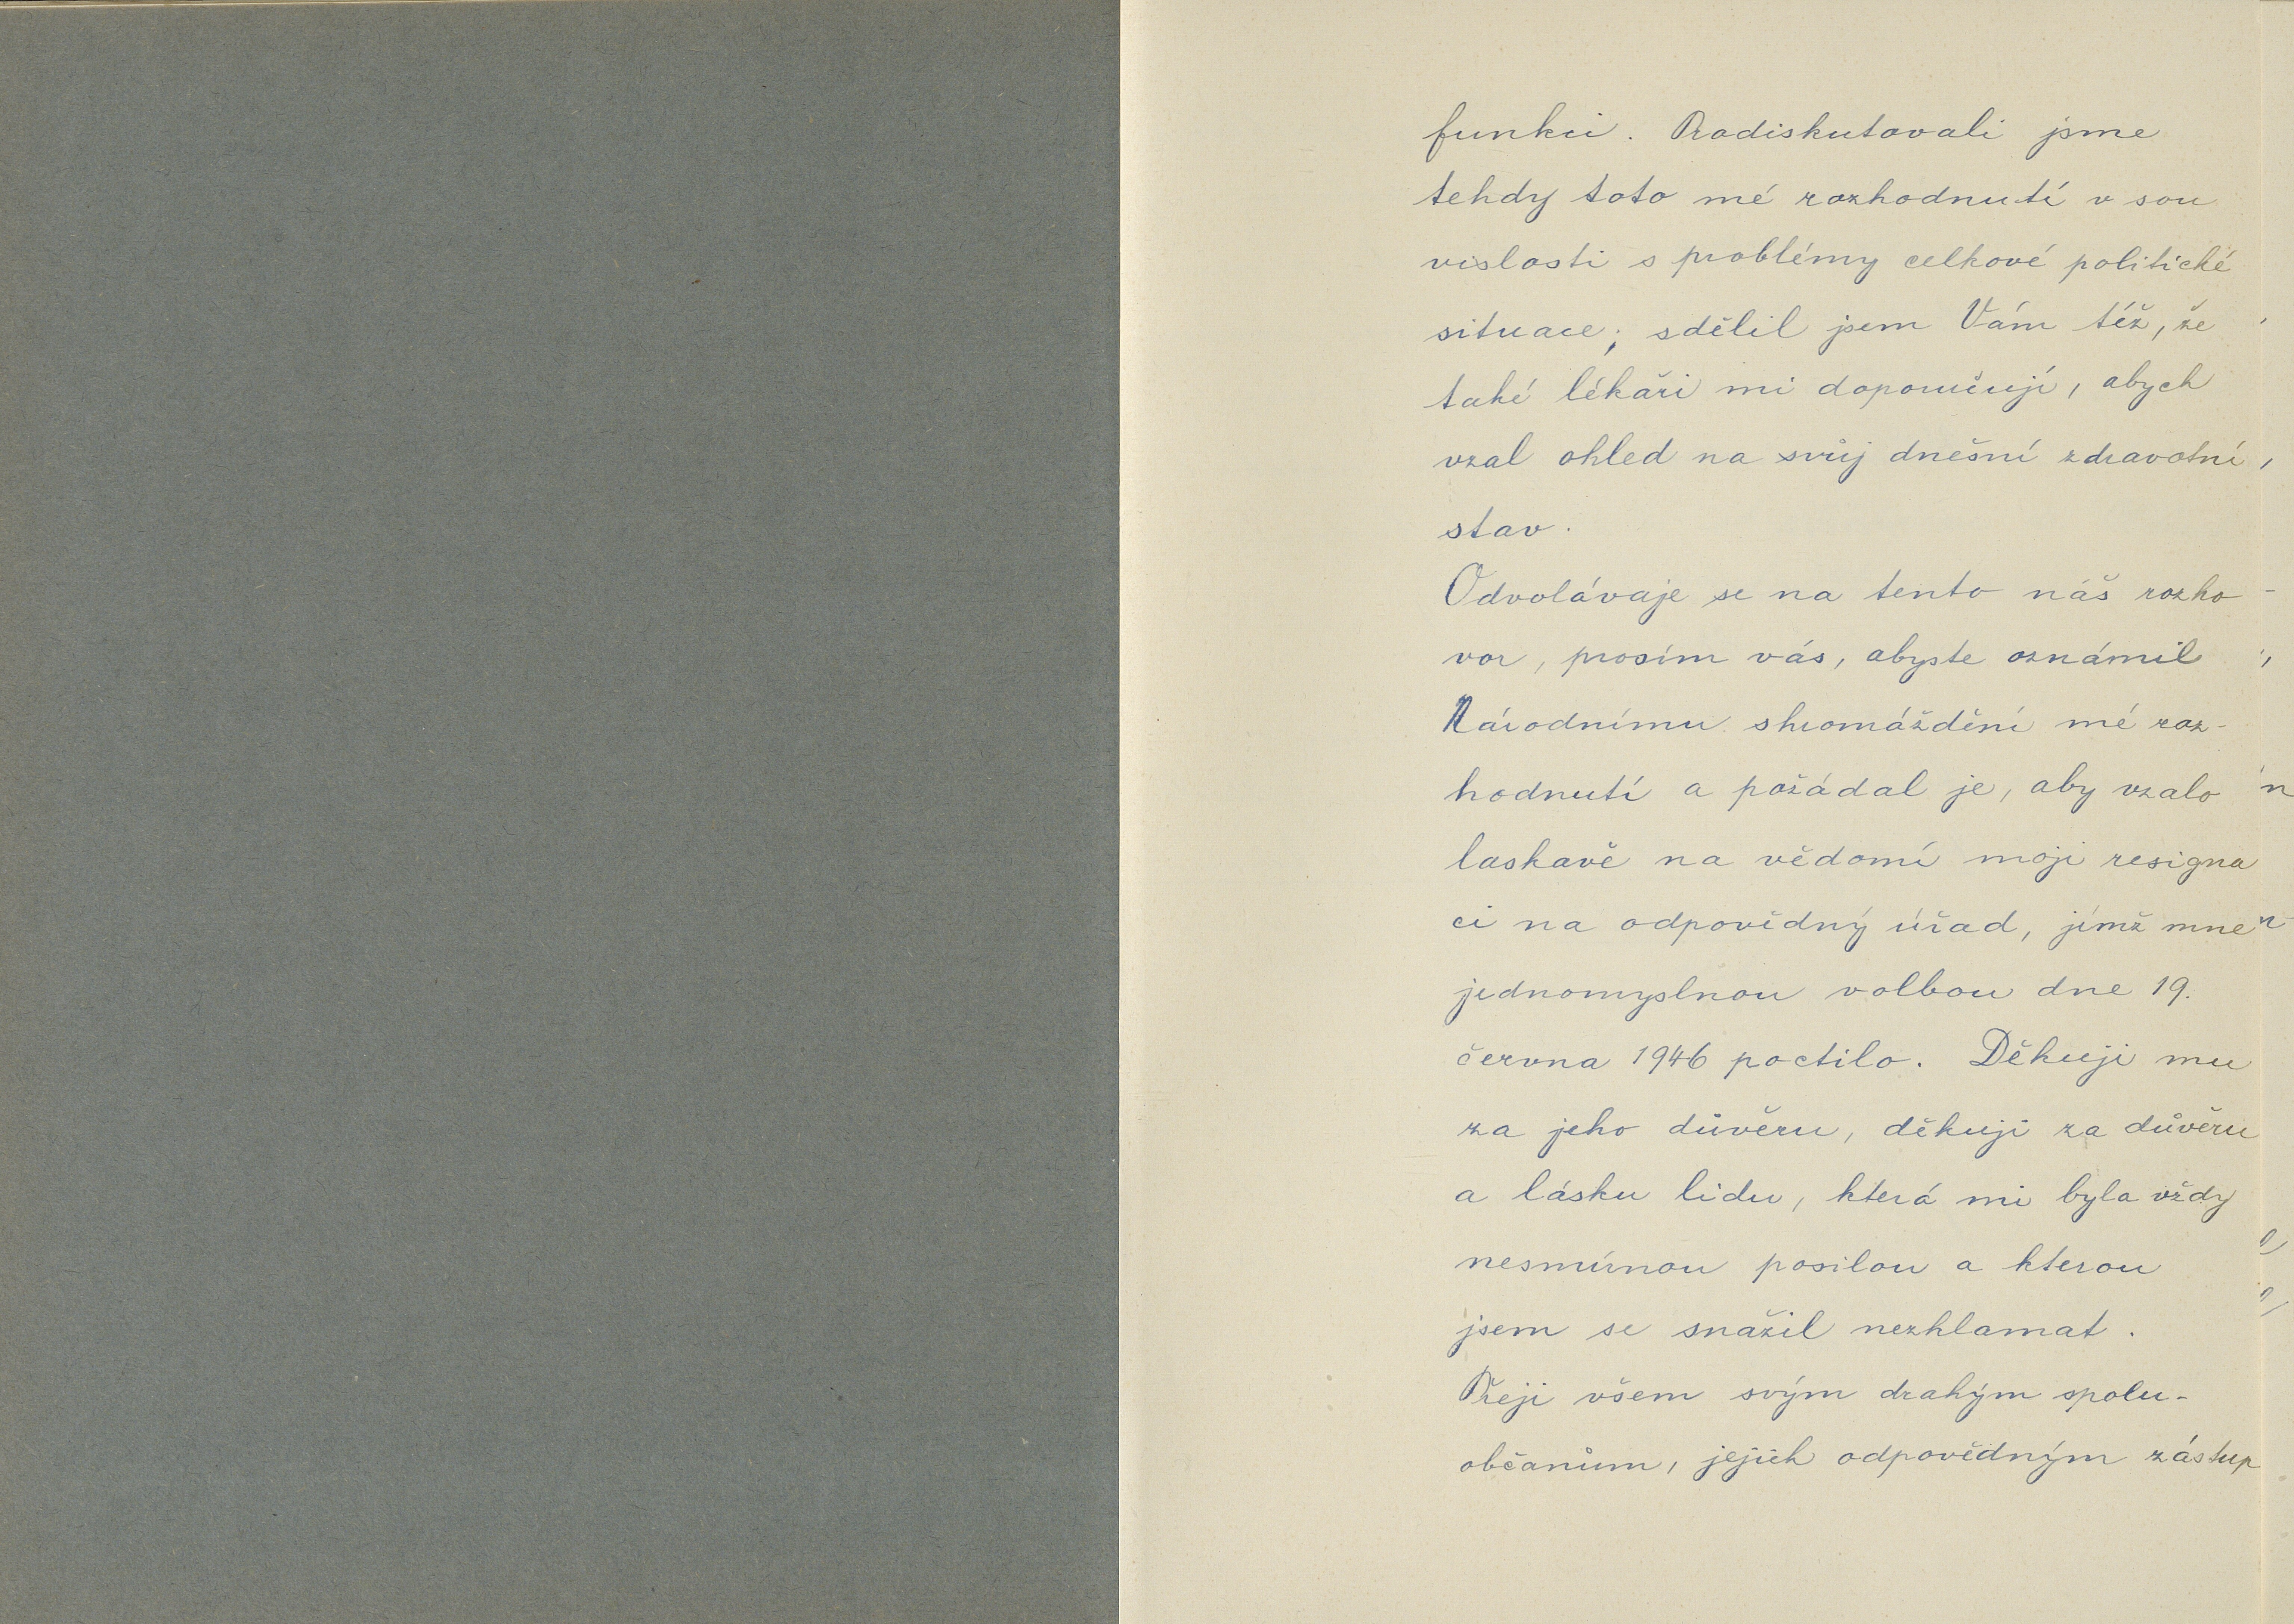 funkci. Prodiskutovali jsme
tehdy toto mé rozhodnutí v sou
vislosti s problémy celkové politické
situace; sdělil jsem Vám též, že
také lékaři mi doporučují, abych
vzal ohled na svůj dnešní zdravotní
stav.
Odvolávaje se na tento náš rozho
vor, prosím vás, abyste oznámil
Národnímu shromáždění mé roz-
hodnutí a požádal je, aby vzalo
laskavě na vědomí moji resigna
ci na odpovědný úřad, jímž mne
jednomyslnou volbou dne 19.
června 1946 poctilo. Děkuji mu
za jeho důvěru, děkuji za důvěru
a lásku lidu, která mi byla vždy
nesmírnou posilou a kterou
jsem se snažil nezklamat.
Přeji všem svým drahým spolu-
občanům, jejich odpovědným zástup